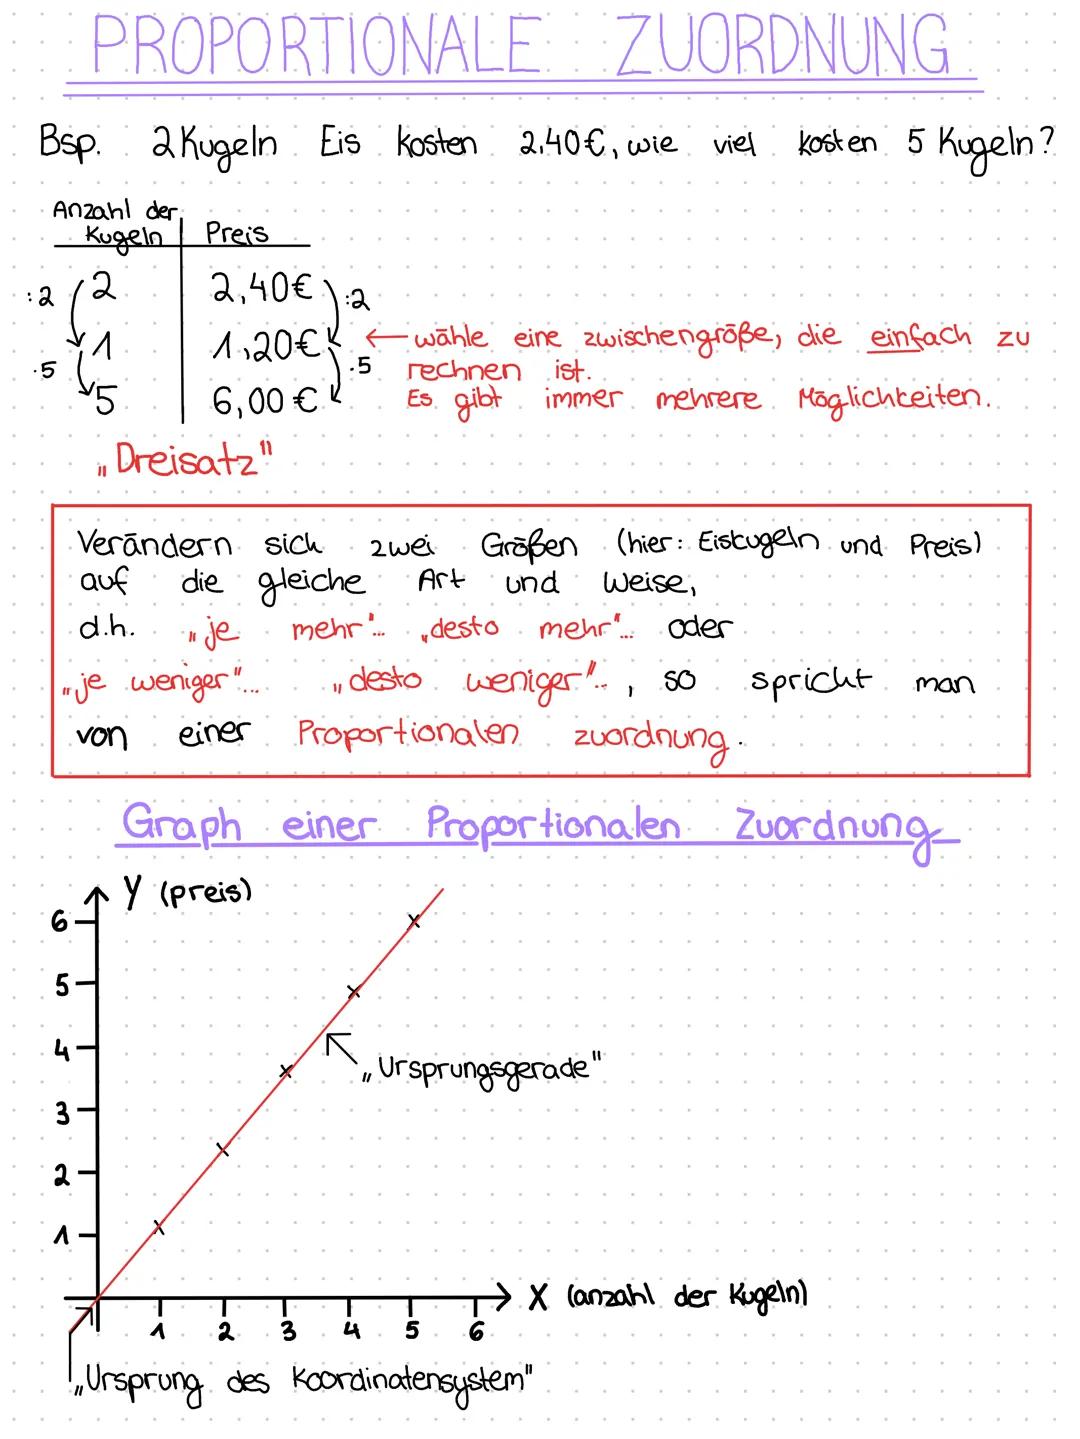 PROPORTIONALE ZUORDNUNG
Bsp. 2 Kugeln Eis kosten 2,40€, wie viel kosten 5 Kugeln?
Anzahl der
Kugeln Preis
:2 2 2,40€ :2
1 1,20€ ← wähle eine zwischengröße, die einfach zu
·5 ·5 rechnen ist.
5 6,00€ Es gibt immer mehrere Möglichkeiten.
„Dreisatz"
Verändern sich zwei Größen (hier: Eiskugeln und Preis)
auf die gleiche Art und Weise,
d.h. „je mehr"... „desto mehr"... oder
„je weniger"... „desto weniger"..., so spricht man
von einer Proportionalen zuordnung.
Graph einer Proportionalen Zuordnung
Y (preis)
6
5
4
„Ursprungsgerade"
3
2
1
X (anzahl der Kugeln)
1 2 3 4 5 6
„Ursprung des Koordinatensystem"